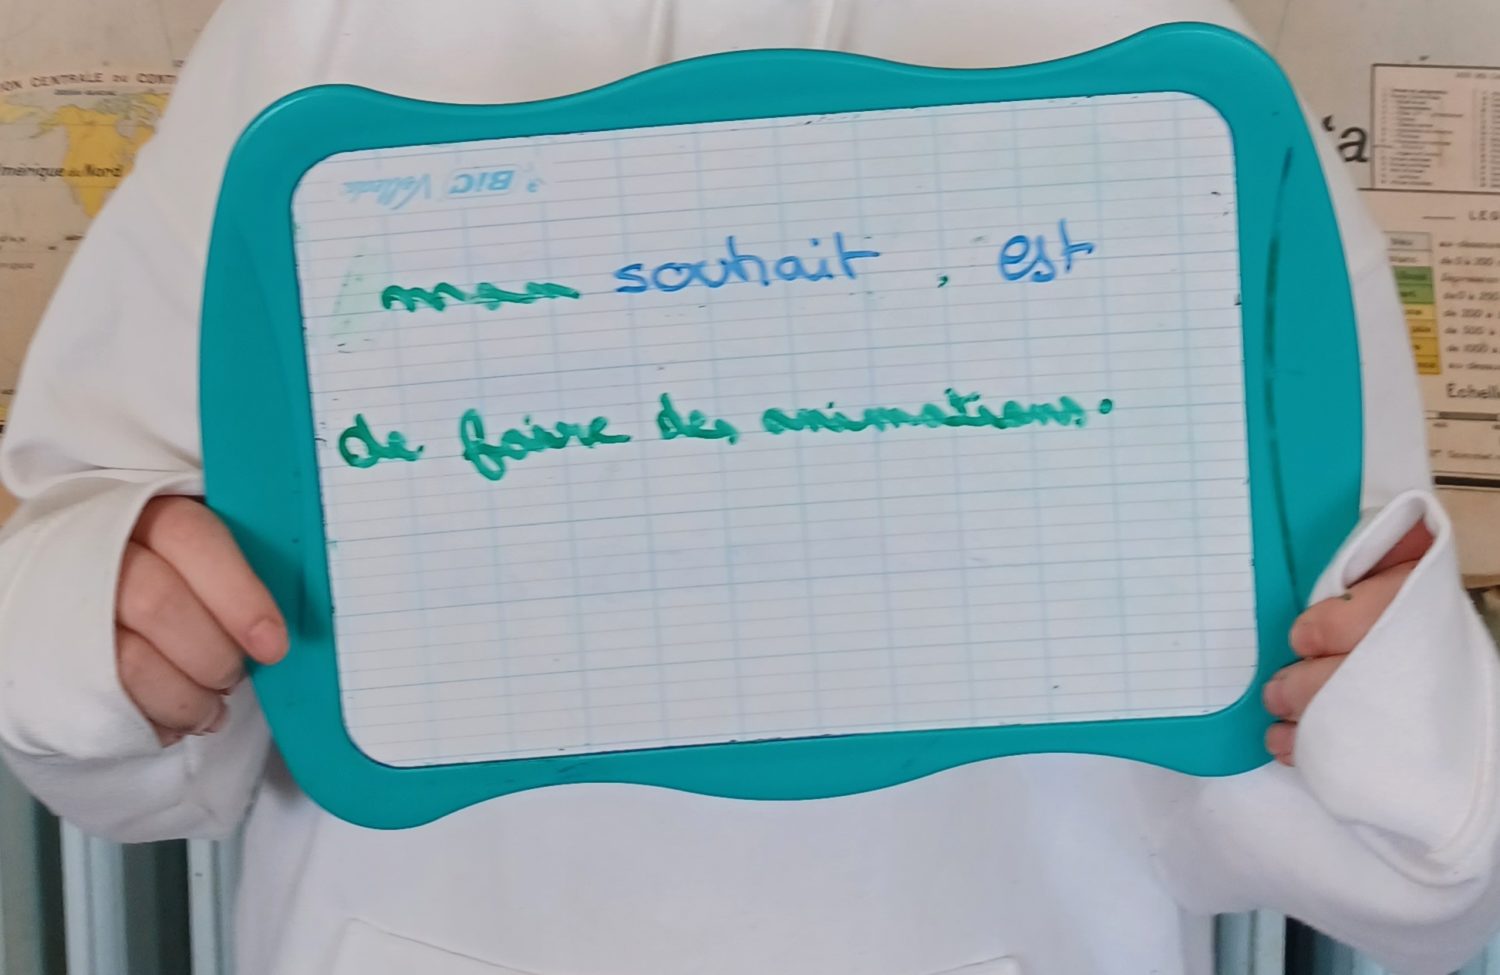 ION CENTRALE DU CONTI
mérique du Nord
BIC Velleda
mon souhait , est
de faire des animations.
'a
LEG
Echell